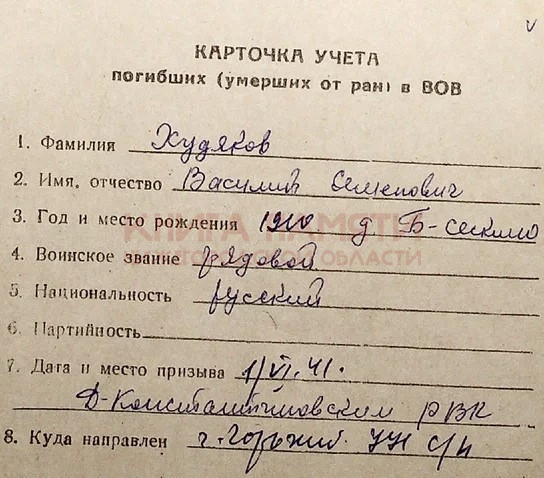 КАРТОЧКА УЧЕТА
погибших (умерших от ран) в ВОВ
1. Фамилия Худяков
2. Имя, отчество Василий Семенович
3. Год и место рождения 1910 д Б-Сескино
КНИГА ПАМЯТИ
ОБЛАСТИ
4. Воинское звание рядовой
5. Национальность русский
6. Партийность
7. Дата и место призыва 1/VI.41.
Д-Константиновским РВК
8. Куда направлен г. Горький